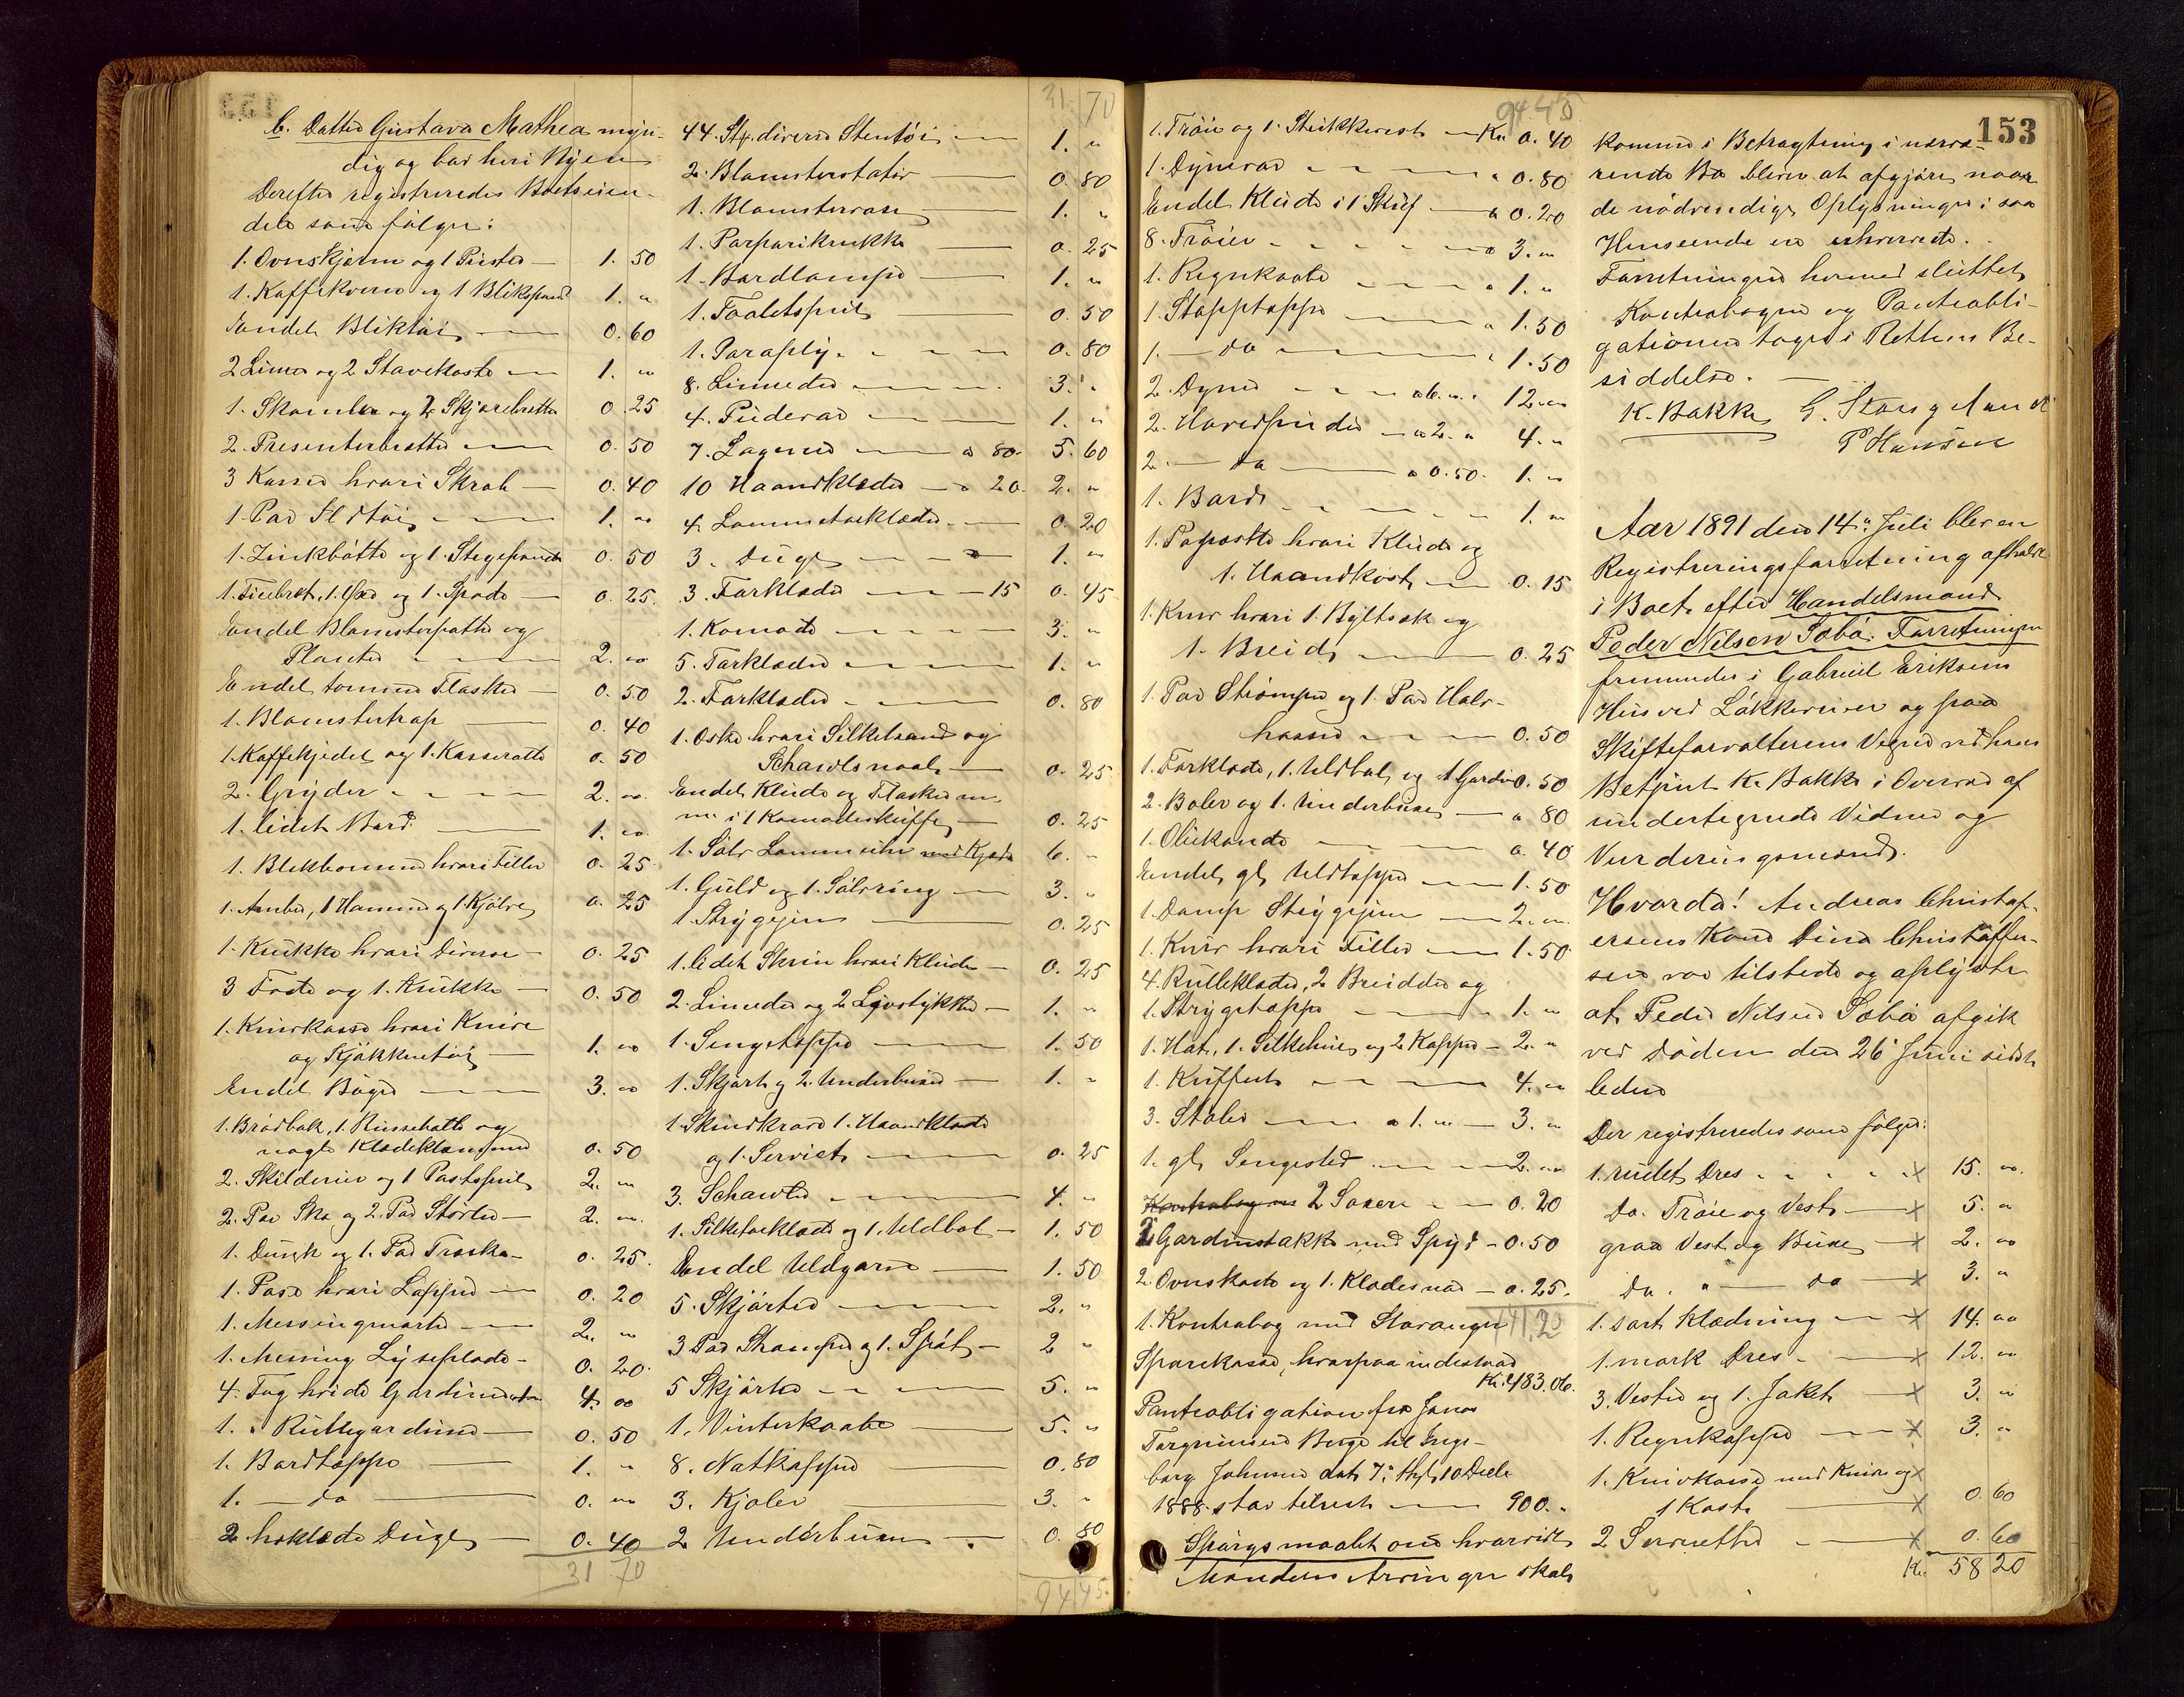 b. Datter Gustava Mathea myn-
dig og bor heri Byen
Derefter registreredes Boets eien-
dele som følger:
1. Ovnskjerm og 1 Puster — 1. 50
1. Kaffekvern og 1 Blikspand 1. "
Endel Bliktøi — 0. 60
2 Limer og 2 Stavekoste — 1. "
1. Skamler og 2 Skjærebrætter 0. 25
2. Presenterbrætter — 0. 50
3 Kasser hvori Skrab — 0. 40
1. Par Ildtøi — 1. "
1. Zinkbøtte og 1. Stegepande 0. 50
1. Fiebræt, 1. Øxe og 1. Spade — 0. 25
Endel Blomsterpotter og
Planter — 2. "
Endel tomme Flasker — 0. 50
1. Blomstertrap — 0. 40
1. Kaffekjedel og 1. Kasserolle 0. 50
2. Gryder — 2. "
1. lidet Bord — 1. "
1. Blikbomme hvori Filler 0. 25
1. Ambu, 1 Hammer og 1. Kjølve 0. 25
1. Krukke hvori diverse — 0. 25
3 Fade og 1. Krukke — 0. 50
1. Knivkasse hvori Knive
og Kjøkkentøi — 1. "
Endel Bøger — 3. "
1. Brødbak, 1. Kussehatte og
nogle Klædeklemmer 0. 50
2. Skilderier og 1 Postspeil 2. "
2. Par Sko og 2. Par Støvler — 2. "
1. Dunk og 1. Par Træsko — 0. 25
1. Pose hvori Lapper — 0. 20
1. Messingmorter — 2. "
1. Messing Lyseplade — 0. 20
4. Fag hvide Gardiner 4. "
1. " Rullegardiner — 0. 50
1. Bordtæppe — 1. "
1. — do — 0. "
2 heklede Duge — 0. 40
31 70
31. 70
44. Stk. diverse Stentøi — 1. "
2. Blomsterstativ — 0. 80
1. Blomstervase — 1. "
1. Parpurikrukke — 0. 25
1. Bordlampe — 1. "
1. Toaletspeil — 0. 50
1. Paraply — 0. 80
8. Linneder — 3. "
4. Pudevar — 1. "
7. Lagener — a 80. 5. 60
10 Haandklæder — a 20. 2. "
4. Lommetørklæder — 0. 20
3. Duge — 1. "
3. Forklæder — 15 0. 45
1. Komode — 3. "
5. Forklæder — 1. "
2. Forklæder — 0. 80
1. Æske hvori Silkebaand og
Schawlsnaal — 0. 25
Endel Klude og Flasker m.
m. i 1 Komodeskuffe — 0. 25
1. Sølv Lommeuhr med Kjæde 6. "
1. Guld og 1. Sølvring — 3. "
1 Strygejern — 0. 25
1. lidet Skrin hvori Klude — 0. 25
2. Linneder og 2 Livstykker — 1. "
1. Sengetæppe — 1. 50
1. Skjørt og 2. Underbuxer — 1. "
1. Skindkrave 1. Haandklæde
og 1. Serviet — 0. 25
3. Schawler — 4. "
1. Silketørklæde og 1. Uldbol — 1. 50
Endel Uldgarn — 1. 50
5. Skjørter — 2. "
3 Par Strømper og 1. Sjøl — 2 "
5 Skjørter — 5. "
1. Vinterkaabe — 5. "
8. Natkapper — 0. 80
3. Kjoler — 3. "
2 Underbuxer — 0. 80
94 45
94 45
1. Trøie og 1. Strikkevest — Kr. 0. 40
1. Dynevar — " 0. 80
Endel Klude i 1 Skuf — " 0. 20
8. Trøier — " 3. "
1. Regnkaabe — " 1. "
1. Stoptæppe — " 1. 50
1. — do — " 1. 50
2. Dyner — a 6. " " 12. "
2. Hovedpuder — a 2. " 4. "
2. — do — a 0. 50. 1. "
1. Bord — 1. "
1. Papæske hvori Klude og
1. Haandkost — 0. 15
1. Kurv hvori 1. Byltsæk og
1. Breide — 0. 25
1. Par Strømper og 1. Par Halv-
hoser — 0. 50
1. Forklæde, 1. Uldbol og 1 Gardin 0. 50
2. Boler og 1. Underbuxe — " 80
1. Oliekande — 0. 40
Endel gl. Uldtæpper — 1. 50
1. Damp Strygejern — 2. "
1. Kurv hvori Filler — 1. 50
4. Rulleklæder, 2 Breidder og
1. Strygetæppe — 1. "
1. Hat, 1. Silkehue og 2 Kapper — 2. "
1. Kuffert — 4. "
3. Stoler — a 1. " — 3. "
1. gl. Sengested — 2. "
2 Saxer — 0. 20
2 Gardinstakker med Spyd — 0. 50
2. Ovnskoste og 1. Klædesnor — 0. 25.
141,20
1. Kontrabog med Stavanger
Sparekasse, hvorpaa indestaar
Kr. 483.06.
Panteobligation fra Jonas
Torgrimsen Berge til Inge-
borg Johnsen dat. 7. thgl. 10 Decbr
1888. stor tilrest — 900. "
Spørgsmaalet om hvorvidt
Mandens Arvinger skal
153
komme i Betragtning i nærvæ-
rende Bo bliver at afgjøre naar
de nødvendige Oplysninger i saa
Henseende er erhvervede.
Forretningen hermed sluttet
Kontrabogen og Panteobli-
gationen toges i Rettens Be-
siddelse. —
K. Bakke G. Stangeland
P Hansen
Aar 1891 den 14. Juli blev en
Registreringsforretning afholdt
i Boet efter Handelsmand
Peder Nilsen Sæbø. Forretningen
fremmedes i Gabriel Eriksens
Hus ved Løkkeveien og paa
Skifteforvalterens Vegne ved hans
Betjent K. Bakke i Overvær af
undertegnede Vidner og
Vurderingsmænd.
Hvorda! Andreas Christof-
ersens Kone Dina Christoffer-
sen var tilstede og oplyste
at Peder Nilsen Sæbø afgik
ved Døden den 26 Juni sidst-
leden
Der registreredes som følger:
1. rudet Dres — x 15. "
Do. Trøie og Vest — x 5. "
graa Vest og Buxe — x 2. "
Do. " — do — x 3. "
1. sort Klædning — x 14. "
1. mørk Dres — x 12. "
3. Veste og 1. Jaket — x 3. "
1. Regnkappe — x 3. "
1. Knivkasse med Knive og x
1 Kost — x 0. 60
2 Servietter — x 0. 60
Kr. 58 20